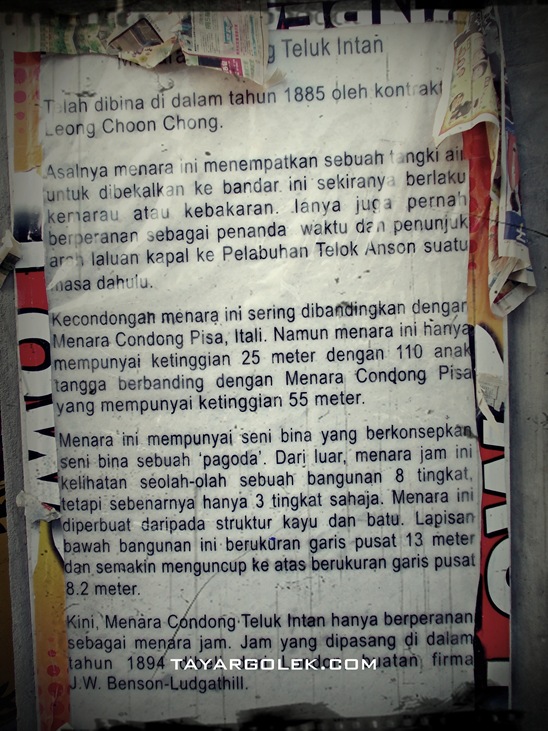 Teluk Intan
Telah dibina di dalam tahun 1885 oleh
Leong Choon Chong.
Asalnya menara ini menempatkan sebuah tangki air
untuk dibekalkan ke bandar ini sekiranya berlaku
kemarau atau kebakaran. Ianya juga pernah
berperanan sebagai penanda waktu dan penunjuk
arah laluan kapal ke Pelabuhan Telok Anson suatu
masa dahulu.
Kecondongan menara ini sering dibandingkan dengan
Menara Condong Pisa, Itali. Namun menara ini hanya
mempunyai ketinggian 25 meter dengan 110 anak
tangga berbanding dengan Menara Condong Pisa
yang mempunyai ketinggian 55 meter.
Menara ini mempunyai seni bina yang berkonsepkan
seni bina sebuah 'pagoda'. Dari luar, menara jam ini
kelihatan seolah-olah sebuah bangunan 8 tingkat,
tetapi sebenarnya hanya 3 tingkat sahaja. Menara ini
diperbuat daripada struktur kayu dan batu. Lapisan
bawah bangunan ini berukuran garis pusat 13 meter
dan semakin menguncup ke atas berukuran garis pusat
8.2 meter.
Kini, Menara Condong Teluk Intan hanya berperanan
sebagai menara jam. Jam yang dipasang di dalam
tahun 1894 buatan firma
TAYARGOLEK.COM
J.W. Benson-Ludgathill.